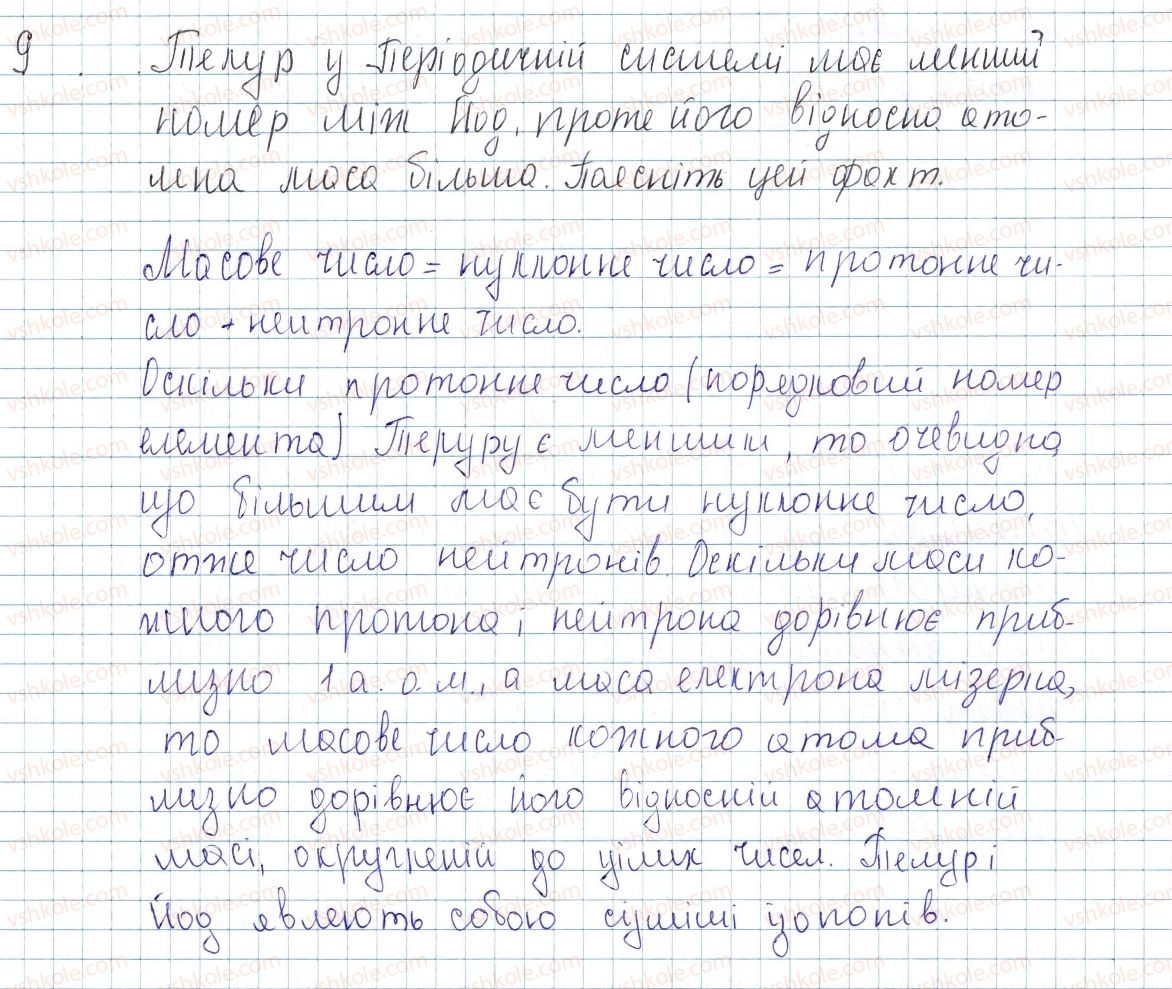 9. Телур у Періодичній системі має менший
номер між Йод, проте його відносна ато-
мна маса більша. Поясніть цей факт.
Масове число = нуклонне число = протонне чи-
сло + нейтронне число.
Оскільки протонне число (порядковий номер
елемента) Теруру є меншим, то очевидно,
що більшим має бути нуклонне число,
отже число нейтронів. Оскільки маси ко-
жного протона і нейтрона дорівнює приб-
лизно 1 а. о. м., а маса електрона мізерна,
то масове число кожного атома приб-
лизно дорівнює його відносній атомній
масі, округленій до цілих чисел. Телур і
Йод являють собою суміші ізопопів.
vshkole.com